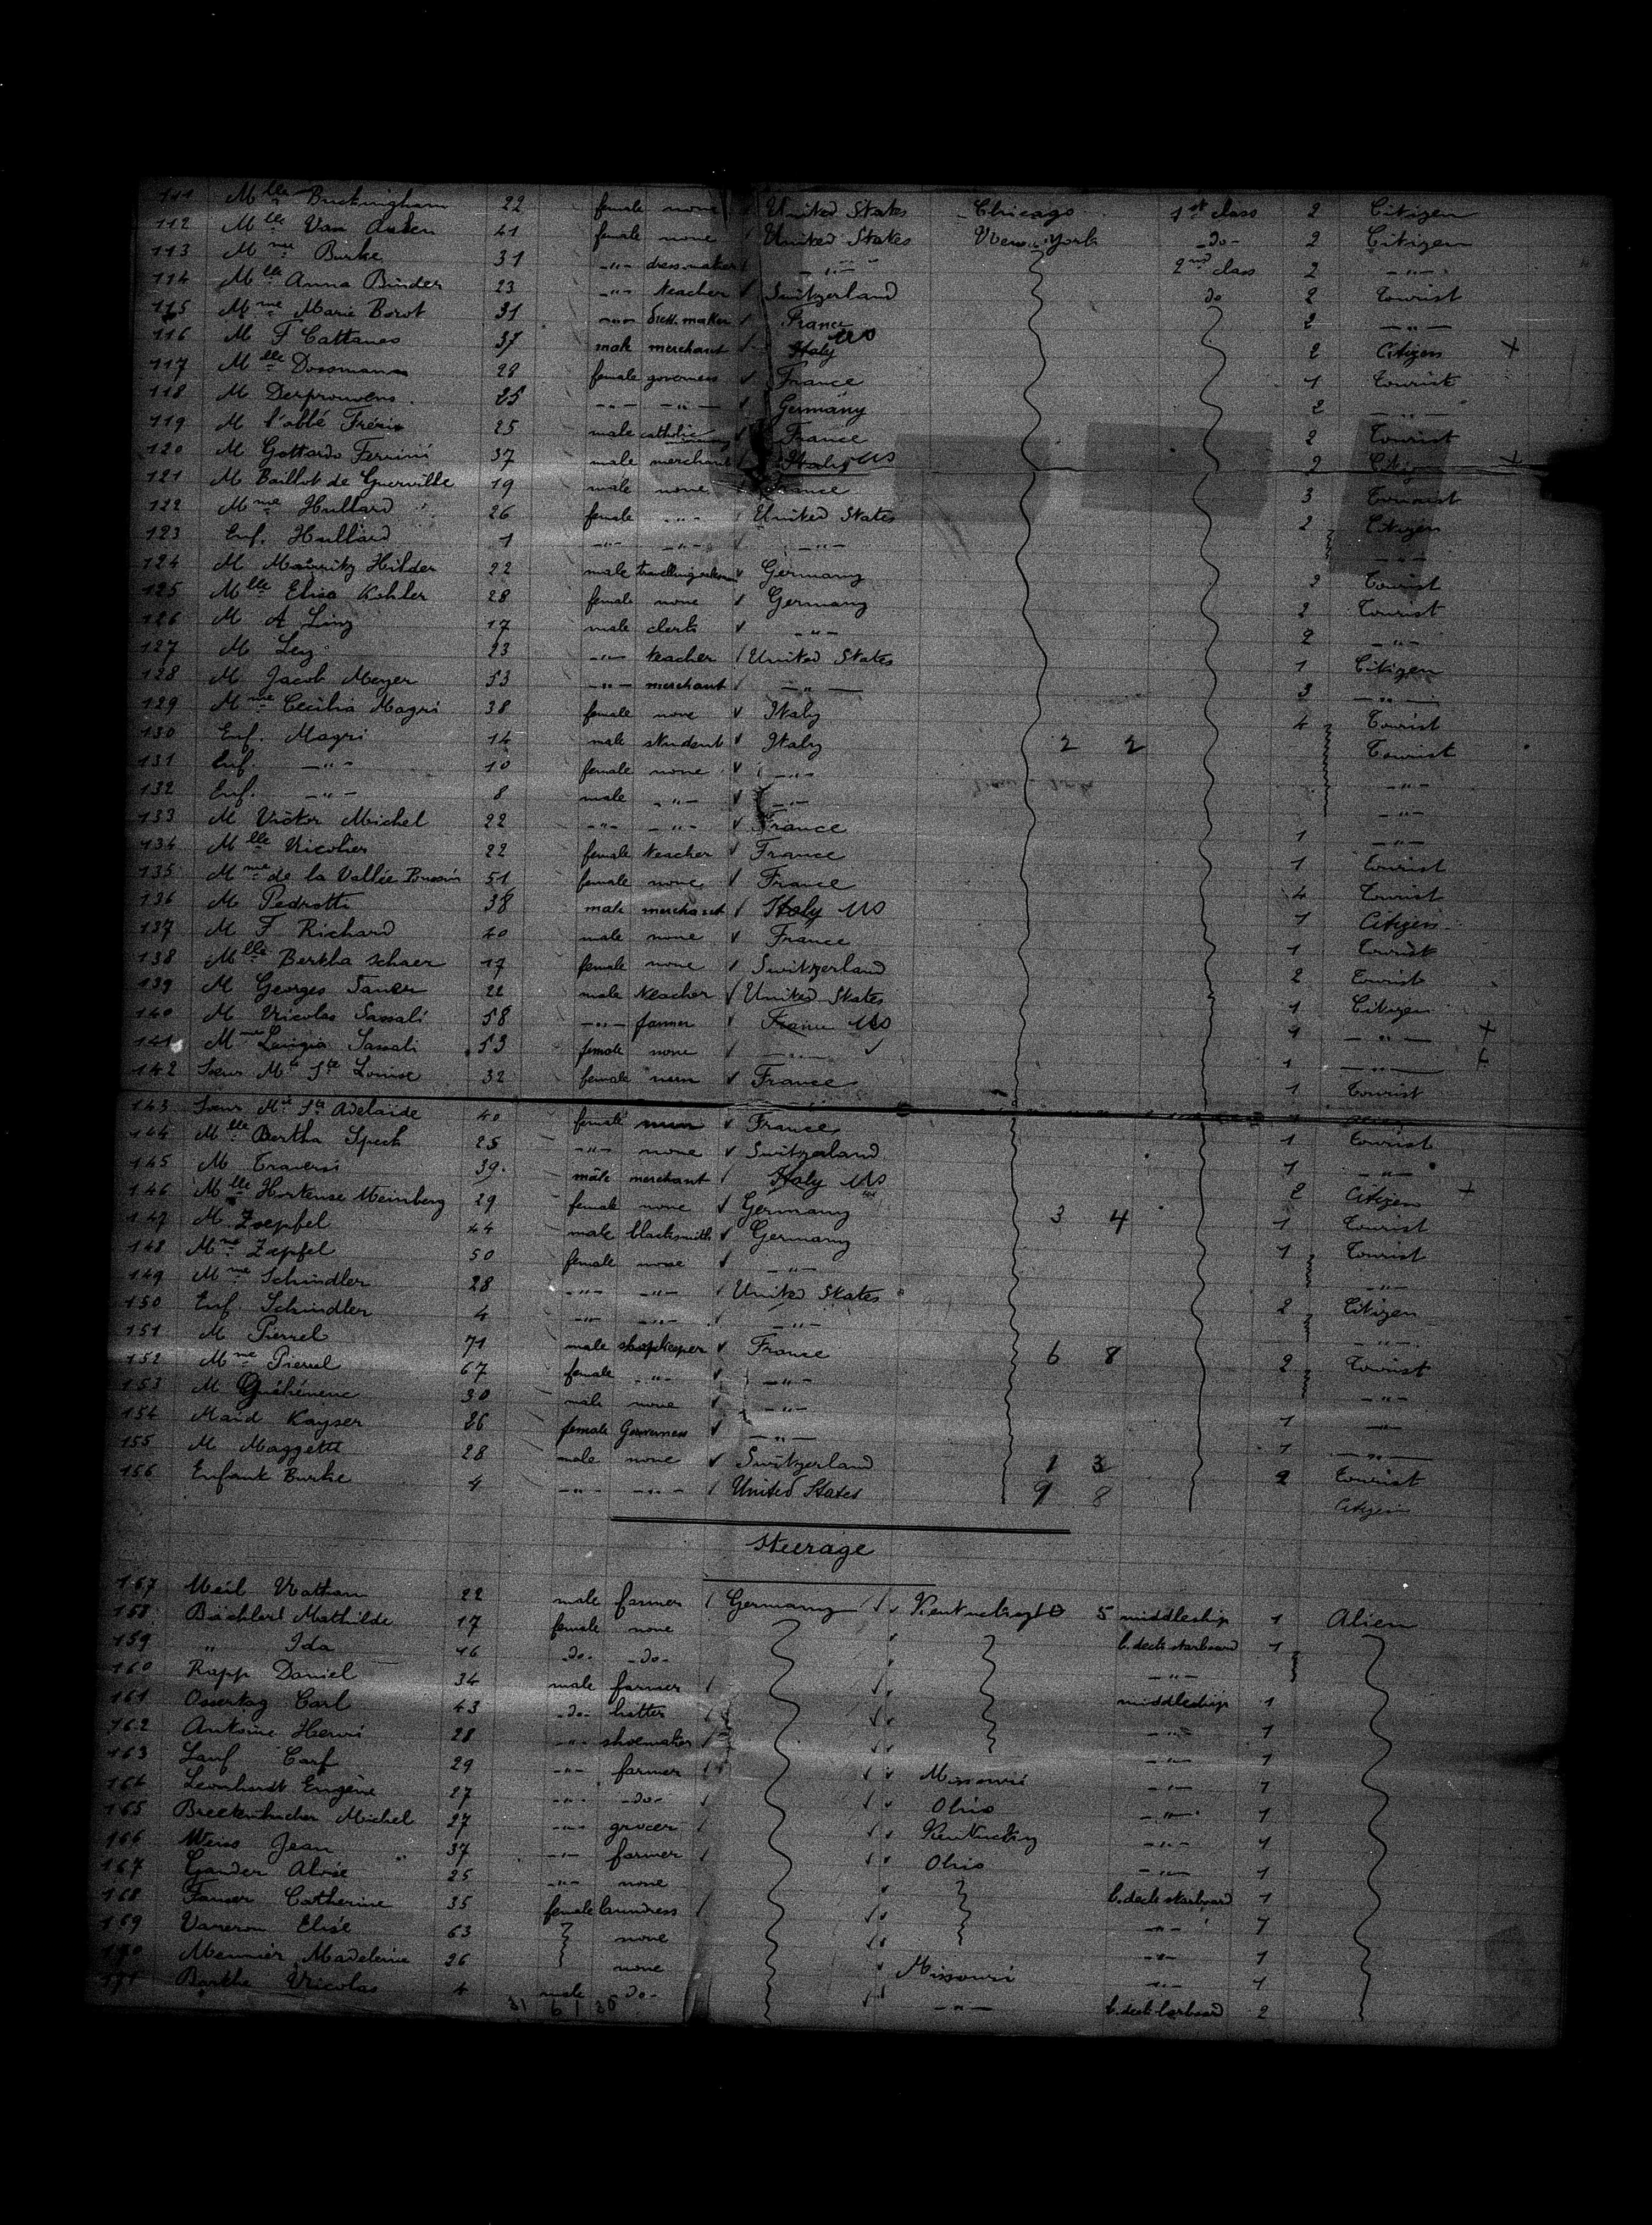 111 Mlle Buckingham 22 female none United States Chicago 1st class 2 Citizen
112 Mlle Van Auken 41 female none United States New-York -do- 2 Citizen
113 Mme Burke 31 -"- dressmaker -"- 2nd class 2 -"-
114 Mlle Anna Binder 23 -"- teacher Switzerland do 2 tourist
115 Mme Marie Borot 31 -"- maker France 2 -"-
116 M F Cattaneo 37 male merchant Italy US 2 Citizen X
117 Mlle Dossmann 28 female governess France 1 tourist
118 M 25 -"- -"- Germany 2 -"-
119 M l'abbé 25 male catholic France 2 Tourist
120 M Gottardo Ferrini 37 male merchant Italy US 2 Citizen
121 M Baillot de Guerville 19 male none France 3 Tourist
122 Mme Hullard 26 female -"- United States 2 Citizen
123 Enf. Hullard 1 -"- -"- -"- -"-
124 M Hilder 22 male Germany 2 Tourist
125 Mlle Elisa Kohler 28 female none Germany 2 Tourist
126 M A Linz 17 male clerk -"- 2 -"-
127 M 23 -"- teacher United States 1 Citizen
128 M Jacob Meyer 53 -"- merchant -"- 3 -"-
129 Mme Cecilia Magri 38 female none Italy 4 Tourist
130 Enf. Magri 14 male student Italy 2 2 Tourist
131 Enf. -"- 10 female none -"- -"-
132 Enf. -"- 8 male -"- -"- -"-
133 M Victor Michel 22 -"- -"- France 1 -"-
134 Mlle Nicolier 22 female teacher France 1 tourist
135 Mme de la Vallée Poussin 51 female none France 4 Tourist
136 M Pedrotti 38 male merchant Italy US 1 Citizen
137 M F Richard 40 male none France 1 tourist
138 Mlle Bertha Schaer 17 female none Switzerland 2 tourist
139 M Georges Sauer 22 male teacher United States 1 Citizen
140 M Nicolas Sassali 58 -"- farmer France US 1 -"- X
141 Mme Luigia Sassali 53 female none -"- 1 -"-
142 Soeur Mie Ste Louise 32 female nun France 1 Tourist
143 Soeur Mie Ste Adelaïde 40 female nun France 1 tourist
144 Mlle Bertha Speck 25 -"- none Switzerland 1 -"-
145 M Traversi 39 male merchant Italy US 2 Citizen
146 Mlle Hortense Weinberg 29 female none Germany 3 4 1 Tourist
147 M Zoepfel 44 male blacksmith Germany 1 Tourist
148 Mme Zepfel 50 female none -"- -"-
149 Mme Schindler 28 -"- -"- United States 2 Citizen
150 Enf. Schindler 4 -"- -"- -"- -"-
151 M Pierrel 71 male shopkeeper France 6 8 2 Tourist
152 Mme Pierrel 67 female -"- -"- -"-
153 M 30 male none -"- 1 -"-
154 Maid Kayser 26 female Governess -"- 1 -"-
155 M Maggetti 28 male none Switzerland 1 3 2 Tourist
156 Enfant Burke 4 -"- -"- United States 9 8 Citizen
Steerage
157 Nathan 22 male farmer Germany 5 middleship 1 Alien
158 Mathilde 17 female none b. deck starboard 1
159 " Ida 16 -do- -do- -"-
160 Rapp Daniel 34 male farmer middleship 1
161 Ossertag Carl 43 -do- hatter -"- 1
162 Antoine Henri 28 -"- shoemaker -"- 1
163 Lauf Carl 29 -"- farmer Missouri -"- 1
164 Leonhardt Eugène 27 -"- -do- Ohio -"- 1
165 Michel 27 -"- grocer Kentucky -"- 1
166 Weiss Jean 37 -"- farmer Ohio -"- 1
167 Gander 25 -"- none b. deck starboard 1
168 Catherine 35 female laundress -"- 1
169 Elise 63 none -"- 1
170 Meunier Madeleine 26 none Missouri -"- 1
171 Barthe Nicolas 4 male -do- -"- b. deck larboard 2
31 6 1 30